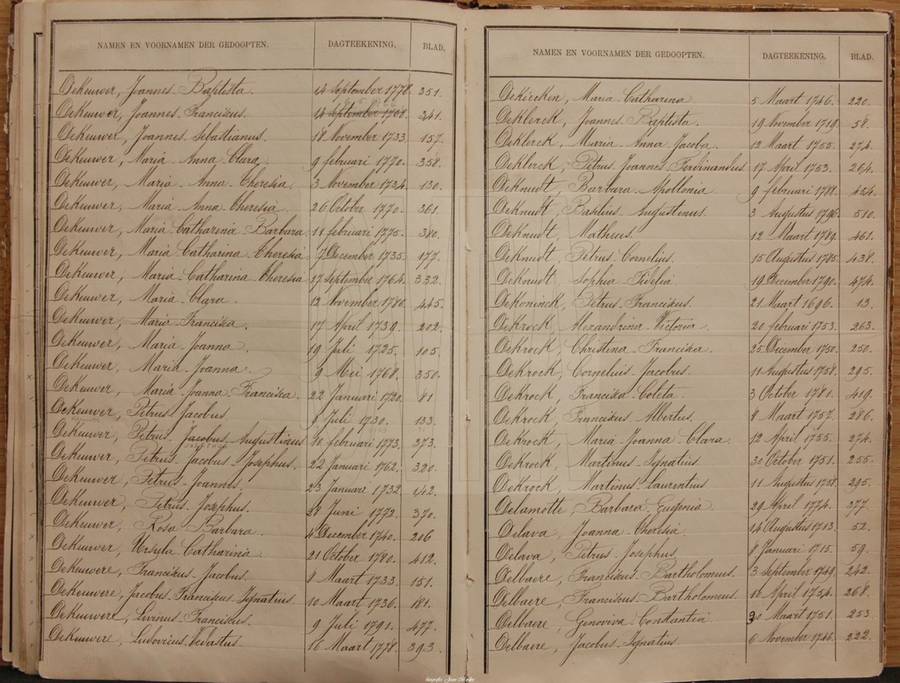 NAMEN EN VOORNAMEN DER GEDOOPTEN. DAGTEEKENING. BLAD.
DeKeuwer, Joannes Baptista. 14 September 1778. 351.
DeKeuwer, Joannes Franciscus. 14 September 1768. 341.
DeKeuwer, Joannes Sebastianus. 18 November 1733. 157.
DeKeuwer, Maria Anna Clara. 9 februari 1770. 358.
DeKeuwer, Maria Anna Theresia. 3 November 1734. 130.
DeKeuwer, Maria Anna Theresia. 26 October 1770. 361.
DeKeuwer, Maria Catharina Barbara. 11 februari 1775. 380.
DeKeuwer, Maria Catharina Theresia. 7 December 1735. 177.
DeKeuwer, Maria Catharina Theresia. 17 September 1764. 332.
DeKeuwer, Maria Clara. 12 November 1786. 445.
DeKeuwer, Maria Francisca. 17 April 1739. 202.
DeKeuwer, Maria Joanna. 19 Juli 1725. 105.
DeKeuwer, Maria Joanna. 9 Mei 1768. 350.
DeKeuwer, Maria Joanna Francisca. 22 Januari 1720. 81
DeKeuwer, Petrus Jacobus. 8 Juli 1730. 133.
DeKeuwer, Petrus Jacobus Augustinus. 10 februari 1773. 373.
DeKeuwer, Petrus Jacobus Josephus. 22 Januari 1762. 320.
DeKeuwer, Petrus Joannes. 23 Januari 1732. 142.
DeKeuwer, Petrus Josephus. 28 Juni 1772. 370.
DeKeuwer, Rosa Barbara. 4 December 1740. 206
DeKeuwer, Ursula Catharina. 21 October 1780. 412.
DeKeuwere, Franciscus Jacobus. 8 Maart 1733. 151.
DeKeuwere, Jacobus Franciscus Ignatius. 10 Maart 1736. 181.
DeKeuwere, Livinus Franciscus. 9 Juli 1791. 477.
DeKeuwere, Ludovicus Vedastus. 16 Maart 1778. 393.
NAMEN EN VOORNAMEN DER GEDOOPTEN. DAGTEEKENING. BLAD.
DeKiecken, Maria Catharina. 5 Maart 1746. 220.
DeKlerck, Joannes Baptista. 19 November 1719. 58.
DeKlerck, Maria Anna Jacoba. 12 Maart 1755. 274.
DeKlerck, Petrus Joannes Ferdinandus. 17 April 1753. 264.
DeKnudt, Barbara Apollonia. 9 februari 1781. 424.
DeKnudt, Basilius Augustinus. 3 Augustus 1796. 510.
DeKnudt, Matheus. 12 Maart 1789. 461.
DeKnudt, Petrus Cornelius. 15 Augustus 1785. 438.
DeKnudt, Sophia Fidelia. 19 December 1790. 474.
DeKoninck, Petrus Franciscus. 21 Maart 1696. 13.
DeKrock, Alexandrina Victoria. 20 februari 1753. 263.
DeKrock, Christina Francisca. 25 December 1750. 250.
DeKrock, Cornelius Jacobus. 11 Augustus 1758. 295.
DeKrock, Francisca Coleta. 3 October 1781. 419.
DeKrock, Franciscus Albertus. 8 Maart 1757. 286.
DeKrock, Maria Joanna Clara. 12 April 1755. 274.
DeKrock, Martinus Ignatius. 30 October 1751. 255.
DeKrock, Martinus Laurentius. 11 Augustus 1758. 295.
Delamotte, Barbara Eugenia. 29 April 1774. 377.
Delava, Joanna Theresia. 14 Augustus 1713. 52.
Delava, Petrus Josephus. 8 Januari 1715. 59.
Delbaere, Franciscus Bartholomeus. 3 September 1749. 242.
Delbaere, Franciscus Bartholomeus. 18 April 1754. 268.
Delbaere, Genoviva Constantia. 30 Maart 1751. 253.
Delbaere, Jacobus Ignatius. 6 November 1746. 222.